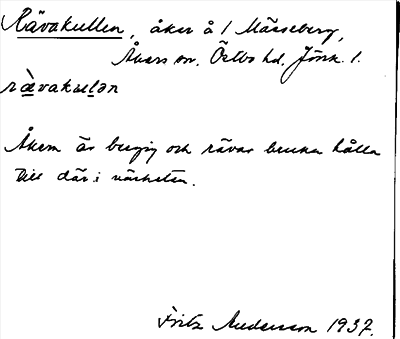 Rävakullen, åker å 1 Mässeberg,
Åkers sn. Östbo hd. Jönk. l.
rävakulən
Åkern är bergig och rävar bruka hålla
till där i närheten.
Fritz Andersson 1937.